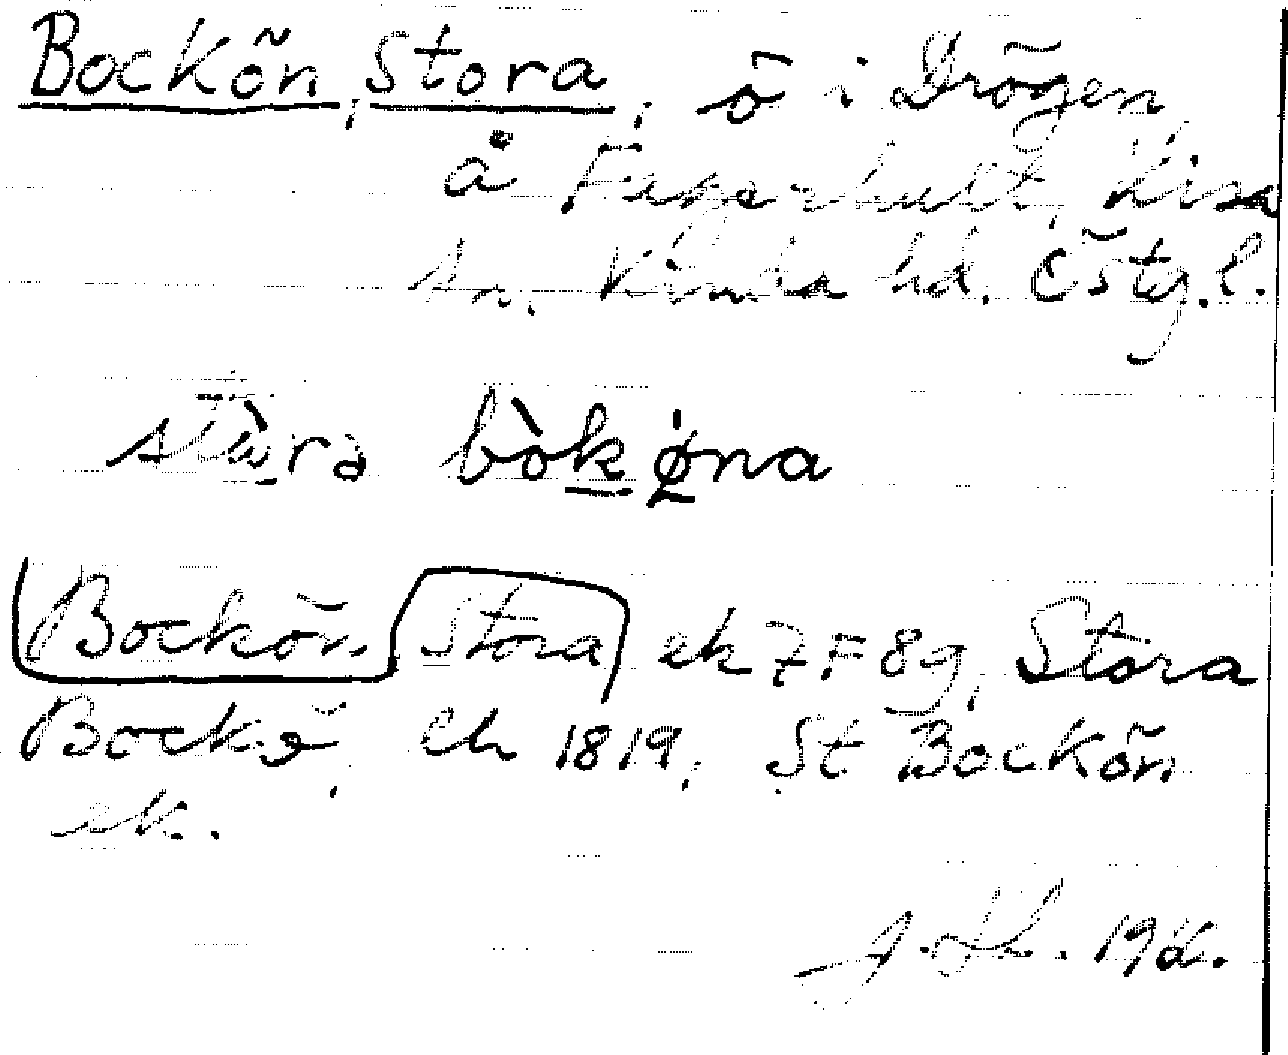 Bockön, Stora, ö i Drögen,
å Fagerhult, Kisa
sn. Kinda hd. Östg. l.
stȯ̀ra bòkøna
Bockön Stora ek 7F8g, Stora
Bockö, ek 1819, St Bockön
ek.